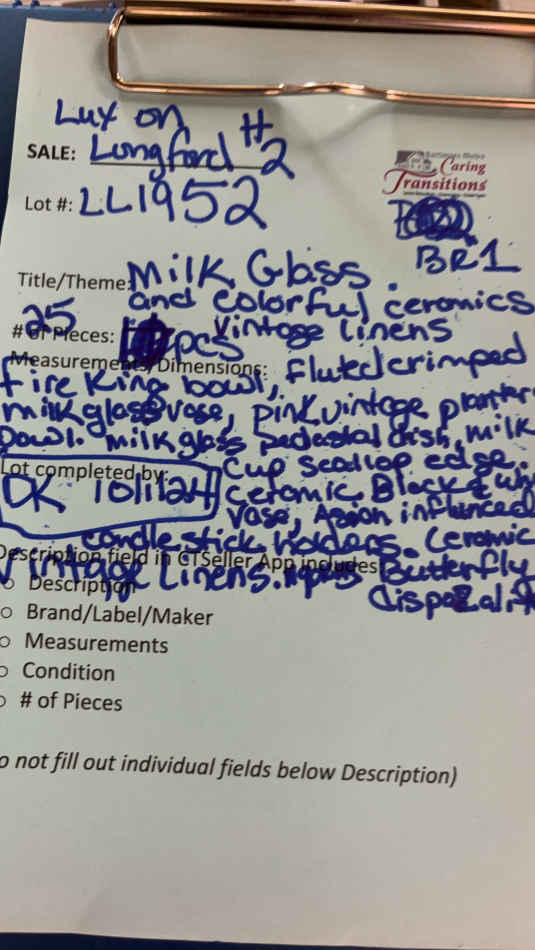 Lux on
SALE: Longford #2
Caring
Transitions
Lot #: LL1952
BR1
Title/Theme: Milk Glass.
and colorful ceramics
25 Vintage linens
# of Pieces: pcs
Measurements/Dimensions: fluted crimped
fire King bowl,
milkglass vase, pink vintage planter
bowl. milkglass pedestal dish, milk
Lot completed by: cup scallop edge.
DK 10/1/24 ceramic Black & Whi
vase, Asian influenced
candlestick holders. Ceramic
Description field in CTSeller App includes:
Vintage Linens. Butterfly
○ Description
○ Brand/Label/Maker
○ Measurements
○ Condition
○ # of Pieces
o not fill out individual fields below Description)